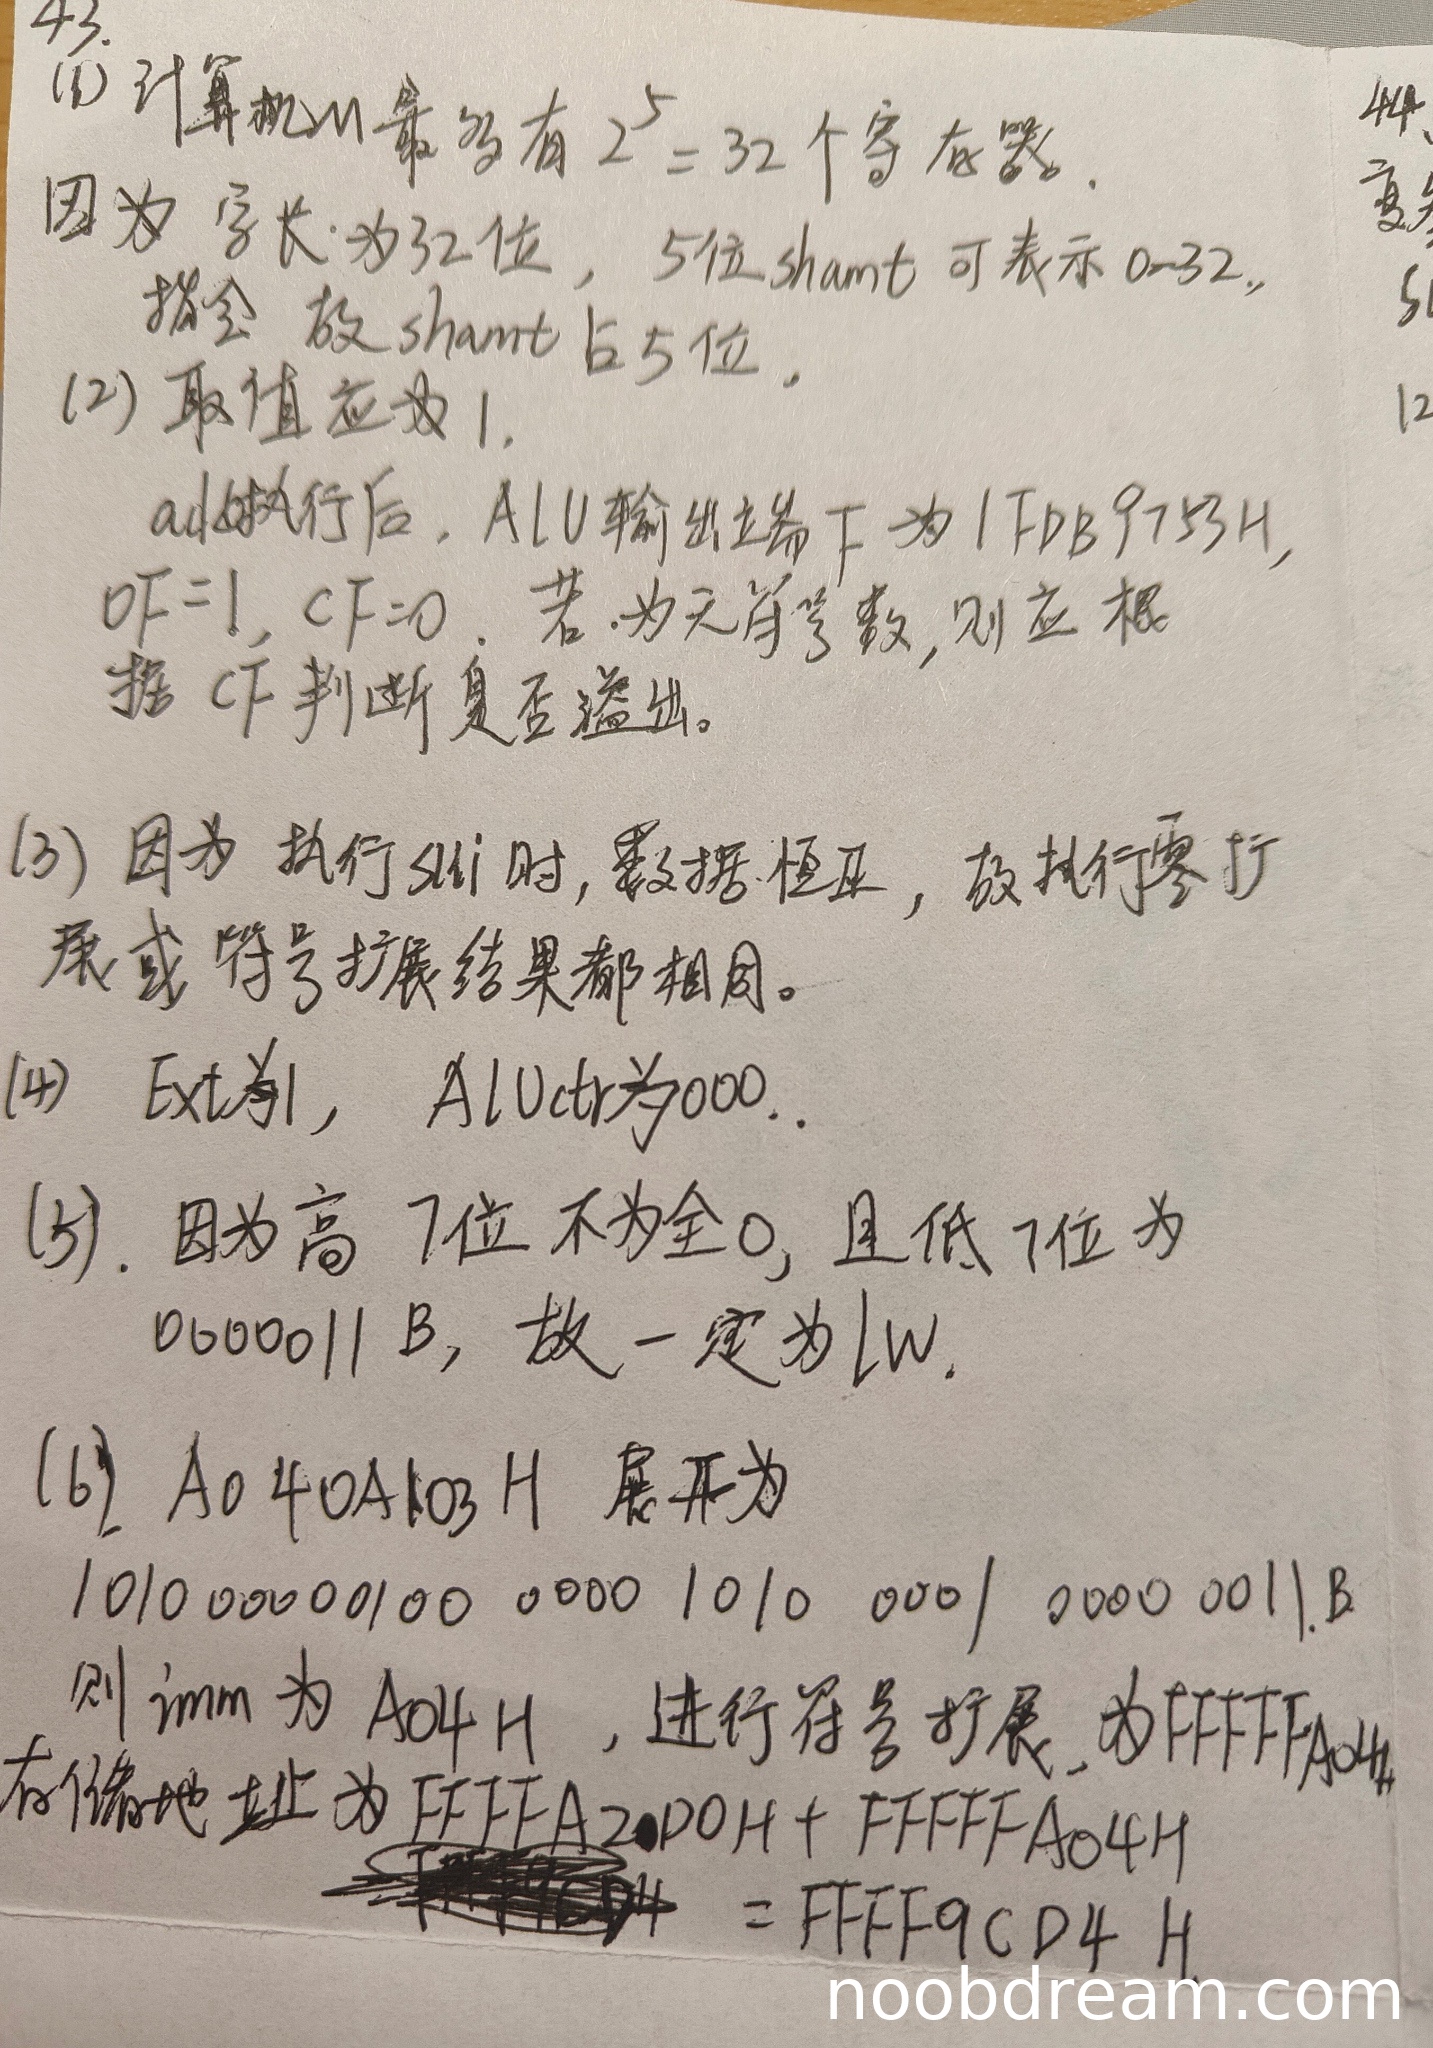 43.
(1) 计算机M最多有 2^5 = 32 个寄存器.
因为 字长为32位, 5位shamt可表示0~32,
指令 故shamt占5位.
(2) 取值应为1.
add执行后, ALU输出端F为1FDB9753H,
OF=1, CF=0. 若为无符号数,则应根
据CF判断是否溢出。
(3) 因为 执行slli时, 数据恒正, 故执行零扩
展或符号扩展结果都相同。
(4) Ext为1, ALUctr为000..
(5). 因为高7位不为全0, 且低7位为
0000011B, 故一定为lw.
(6) A040A103H 展开为
1010 00000100 0000 1010 0001 0000 0011.B
则imm为A04H, 进行符号扩展, 为FFFFFA04H
存储地址为FFFFA2D0H + FFFFFA04H
= FFFF9CD4H
44、
变
sl
12
noobdream.com